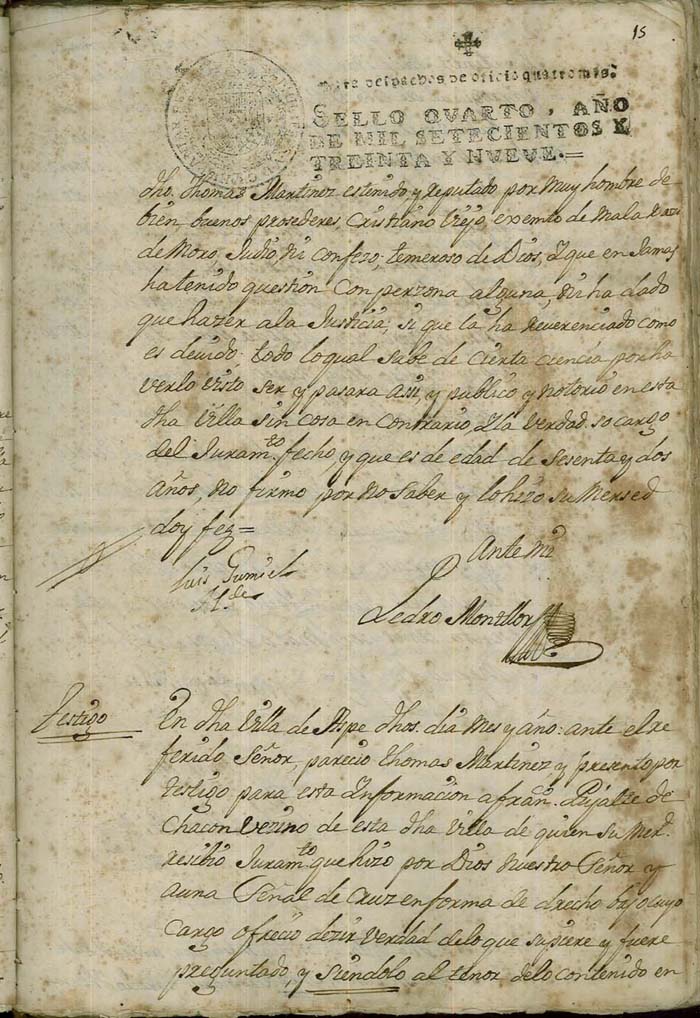 15
para despachos de oficio quatro mrs.
SELLO QVARTO, AÑO
DE MIL SETECIENTOS Y
TREINTA Y NVEVE.=
dho. Thomas Martinez es tenido y reputado por muy hombre de
bien, buenos prosederes, Cristiano Viejo, exemto de mala Raza
de Moro, Judio, ni confezo; temeroso de Dios, y que en Jamas
ha tenido question con perzona alguna, ni ha dado
que hazer a la Justicia, si que la ha Reverenciado como
es devido: todo lo qual sabe de cierta ciencia por ha
verlo visto ser y pasar assi, y publico y notorio en esta
dha Villa sin cosa en contrario, y la verdad so cargo
del Juramto. fecho, y que es de edad de Sesenta y dos
años, no firmo por no saber y lo hizo su Mersed
doy fee=
Ante mi
Luis Gumiel
Alde
Pedro Montllor
Testigo
En dha Villa de Aspe dhos. dia mes y año: ante el re
ferido Señor, parecio Thomas Martinez y presento por
testigo para esta Informacion a fran. Pujalte de
Chacon Vezino de esta dha Villa de quien su Merd.
resibio Juramto que hizo por Dios Nuestro Señor y
a una Señal de Cruz en forma de drecho bajo cuyo
cargo ofrecio dezir verdad de lo que supiere y fuere
preguntado, y siendolo al tenor de lo contenido en